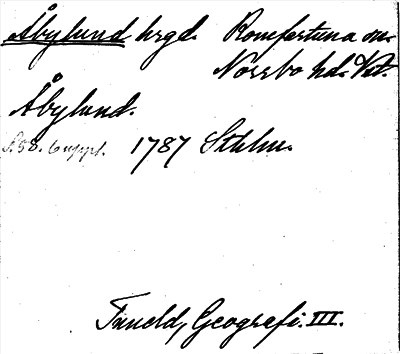 Åbylund hrgd. Romfartuna sn.
Norrbo hd. Vstl.
Åbylund.
s. 58. 6 uppl. 1787 Sthlm.
Tuneld, Geografi. III.